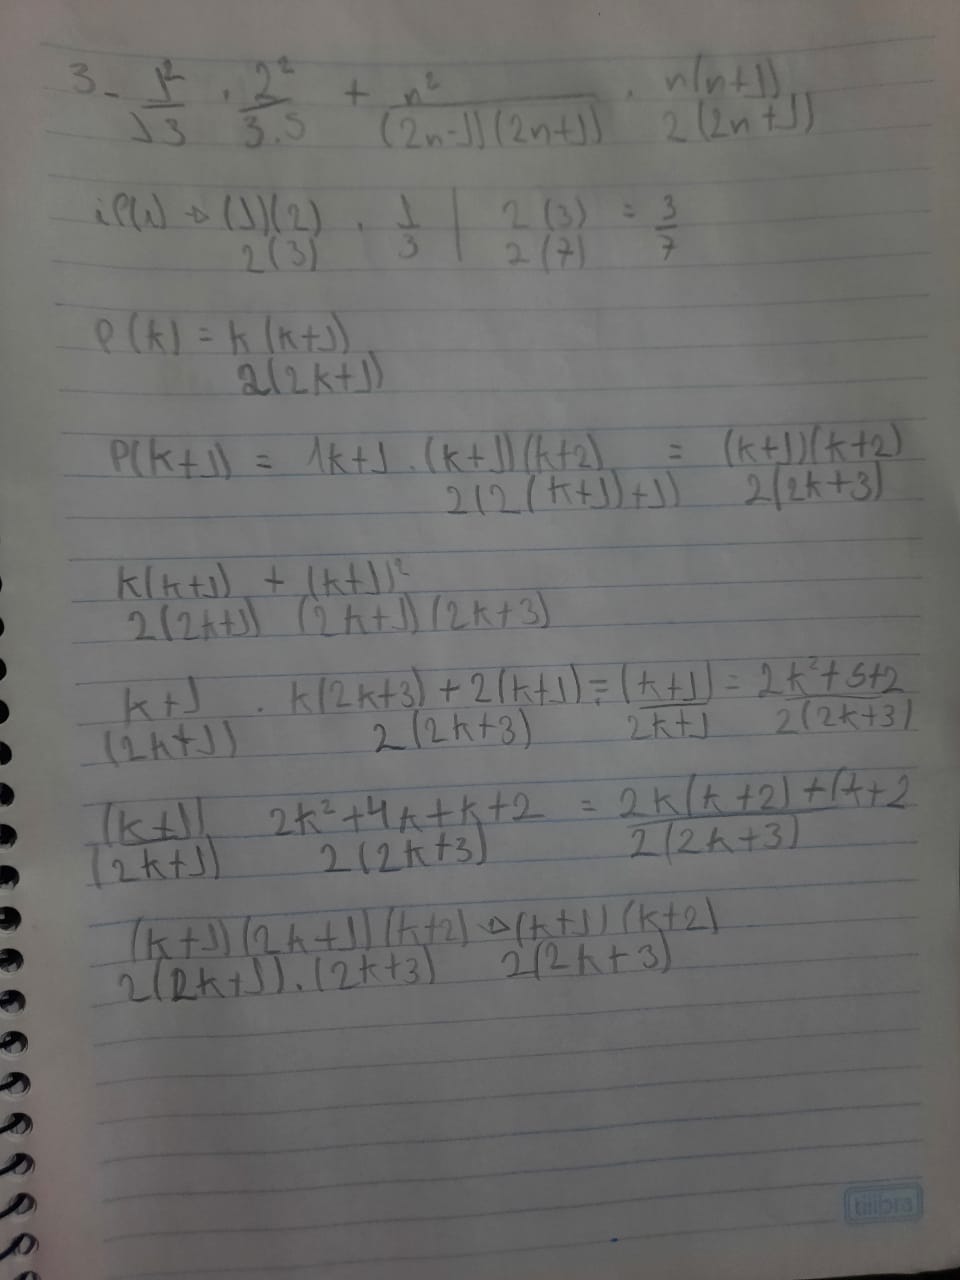 3- 1²/13 . 2²/3.5 + n²/(2n-1)(2n+1) . n(n+1)/2(2n+1)
iP(1) → (1)(2)/2(3) . 1/3 | 2(3)/2(7) = 3/7
P(k) = k(k+1)/2(2k+1)
P(k+1) = 1k+1 . (k+1)(k+2)/2(2(k+1)+1) = (k+1)(k+2)/2(2k+3)
k(k+1)/2(2k+1) + (k+1)²/(2k+1)(2k+3)
k+1/(2k+1) . k(2k+3)+2(k+1)/2(2k+3) = (k+1)/2k+1 = 2k²+5+2/2(2k+3)
(k+1)/(2k+1) 2k²+4k+k+2/2(2k+3) = 2k(k+2)+(k+2/2(2k+3)
(k+1)(2k+1)(k+2)/2(2k+1).(2k+3) → (k+1)(k+2)/2(2k+3)
tilibra